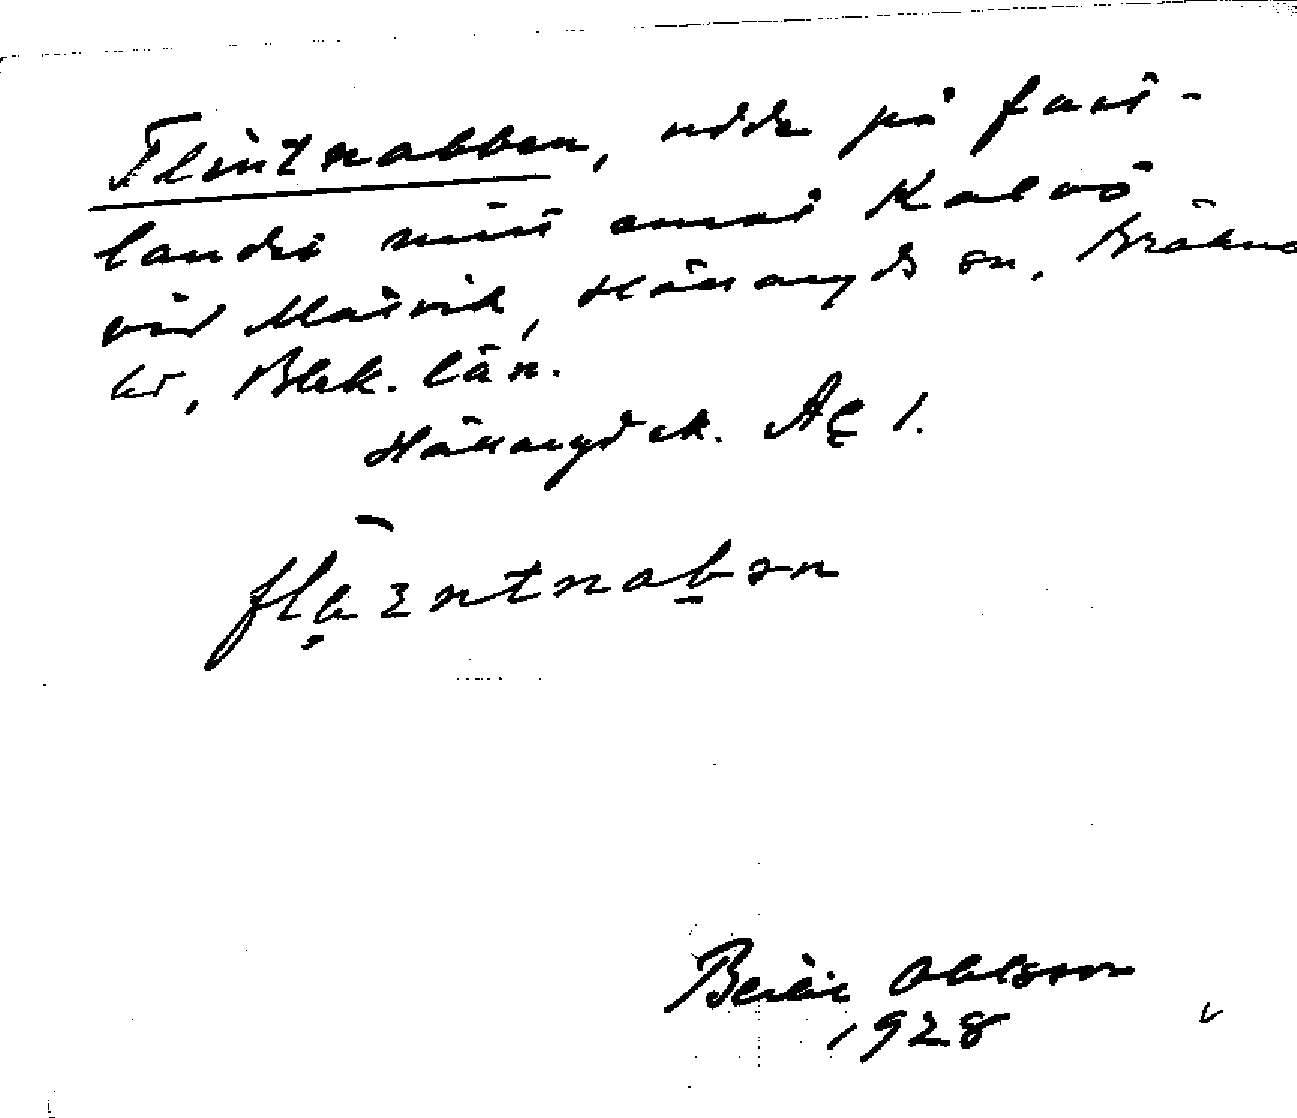 Flintnabben, udde på fast-
landet mitt emot Kalvö
vid Matvik, Hällaryds sn, Bräkne
hd, Blek. län.
Hällaryd ek. Ae 1.
Bertil Ohlsson
1928